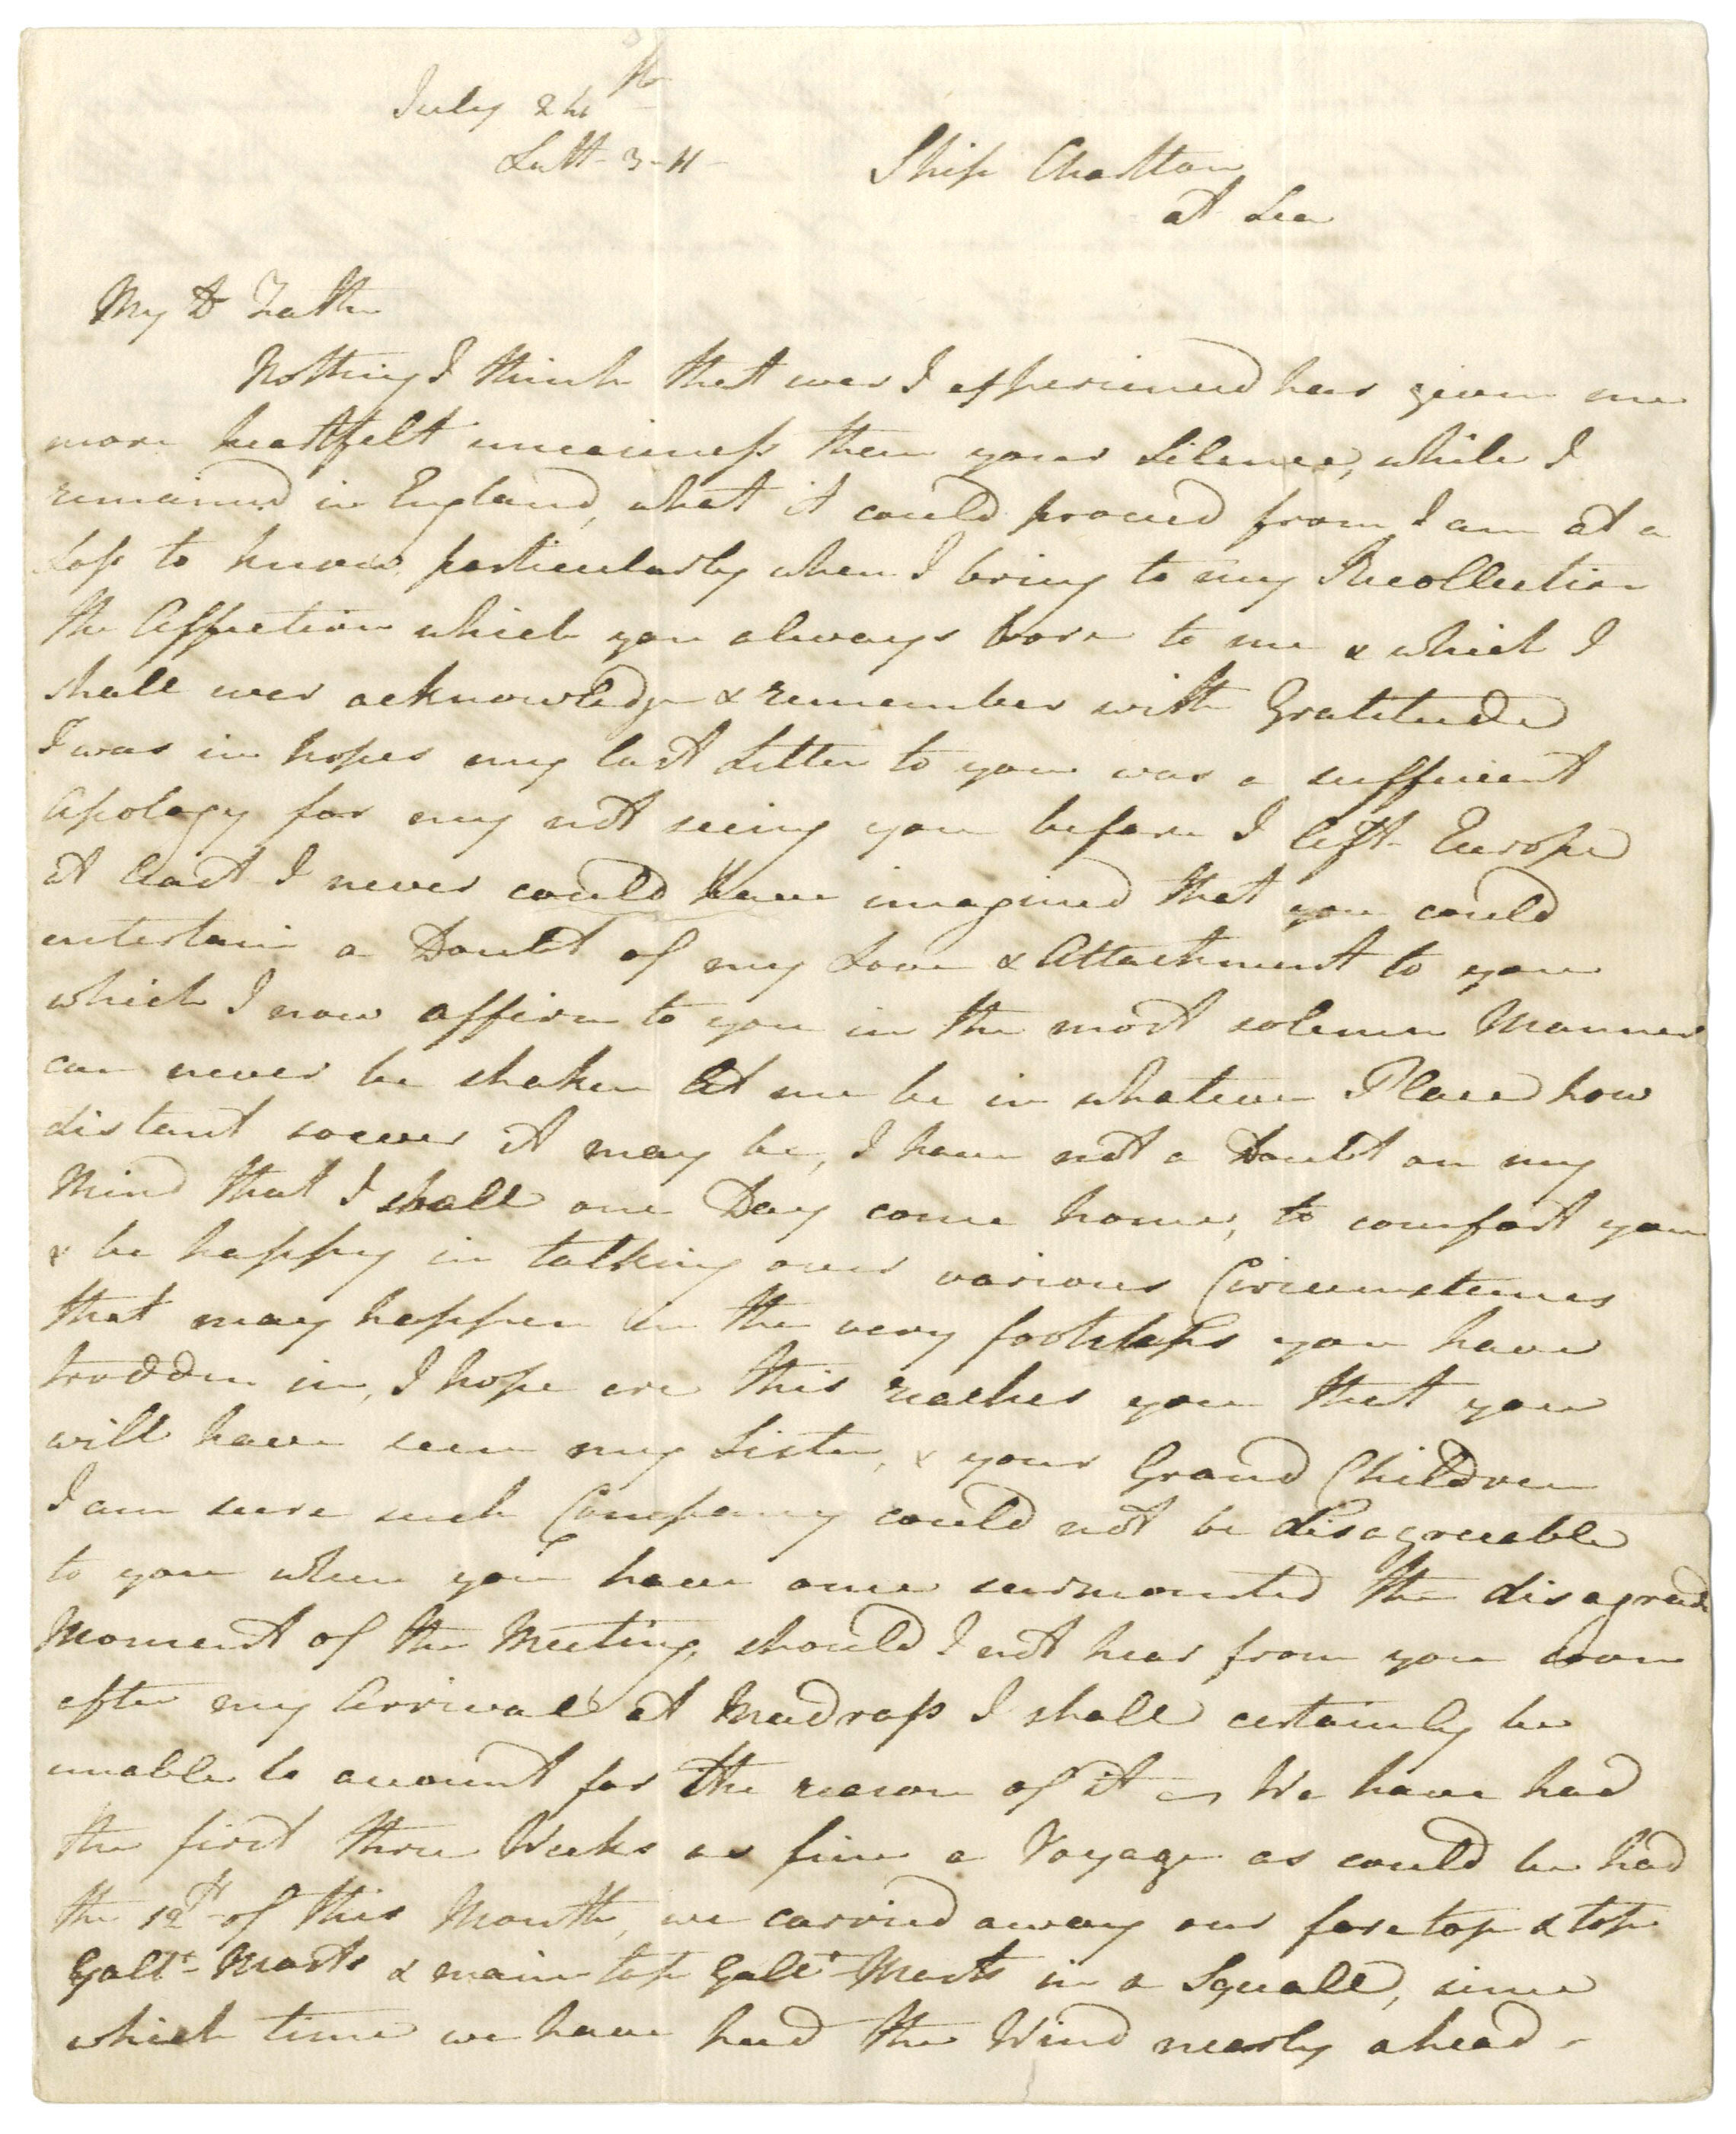 July 24th
Latt - 3 - N -
Ship Charlton
at Sea
My Dr Father
Nothing I think that ever I experienced has given me
more heartfelt uneasiness than your Silence, while I
remained in England, what it could proceed from I am at a
Loss to know, particularly when I bring to my Recollection
the Affection which you always bore to me & which I
shall ever acknowledge & remember with Gratitude
I was in hopes my last Letter to you was a sufficient
Apology for my not seeing you before I left Europe
at least I never could have imagined that you could
entertain a Doubt of my Love & Attachment to you
which I now affirm to you in the most solemn Manner
can never be shaken let me be in whatever Place how
distant soever it may be, I have not a Doubt on my
Mind that I shall one Day come home, to comfort you
& be happy in talking over various Circumstances
that may happen in the very footsteps you have
trodden in, I hope ere this reaches you that you
will have seen my Sister, & your Grand Children
I am sure such Company could not be disagreeable
to you when you have once surmounted the disagreeable
Moment of the Meeting, should I not hear from you soon
after my Arrival at Madrass I shall certainly be
unable to account for the reason of it - We have had
the first three Weeks as fine a Voyage as could be had
the 12th of this Month, we carried away our fore top & top
Gallt- Masts & main top Gallt- Masts in a Squall, since
which time we have had the Wind nearly ahead -